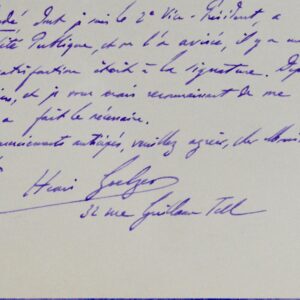 dé dont je suis le 2e Vice-Président, a
ité Publique, et on l'a avisée, il y a un
atisfaction était à la signature. Dep
et je vous serais reconnaissant de me
a fait le nécessaire.
merciements anticipés, veuillez agréer, cher Monsi
Henri Goelzer
32 rue Guillaume Tell